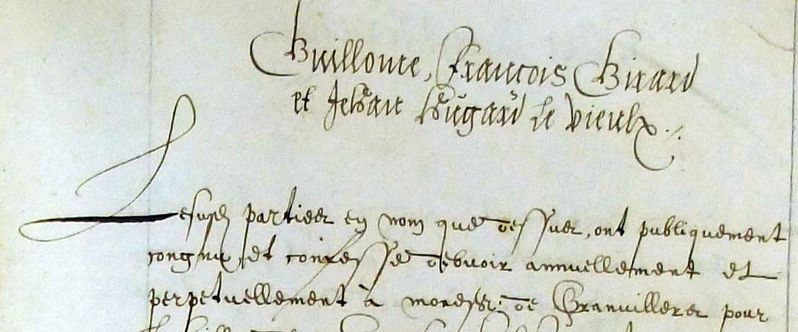 Guillome, François Girard
et Jehan Hugard le vieulx
Lesusd parties en nom que dessus, ont publiquement
congnu, et confesse debvoir annuellement et
perpetuellement à mondsr de Granvillers pour